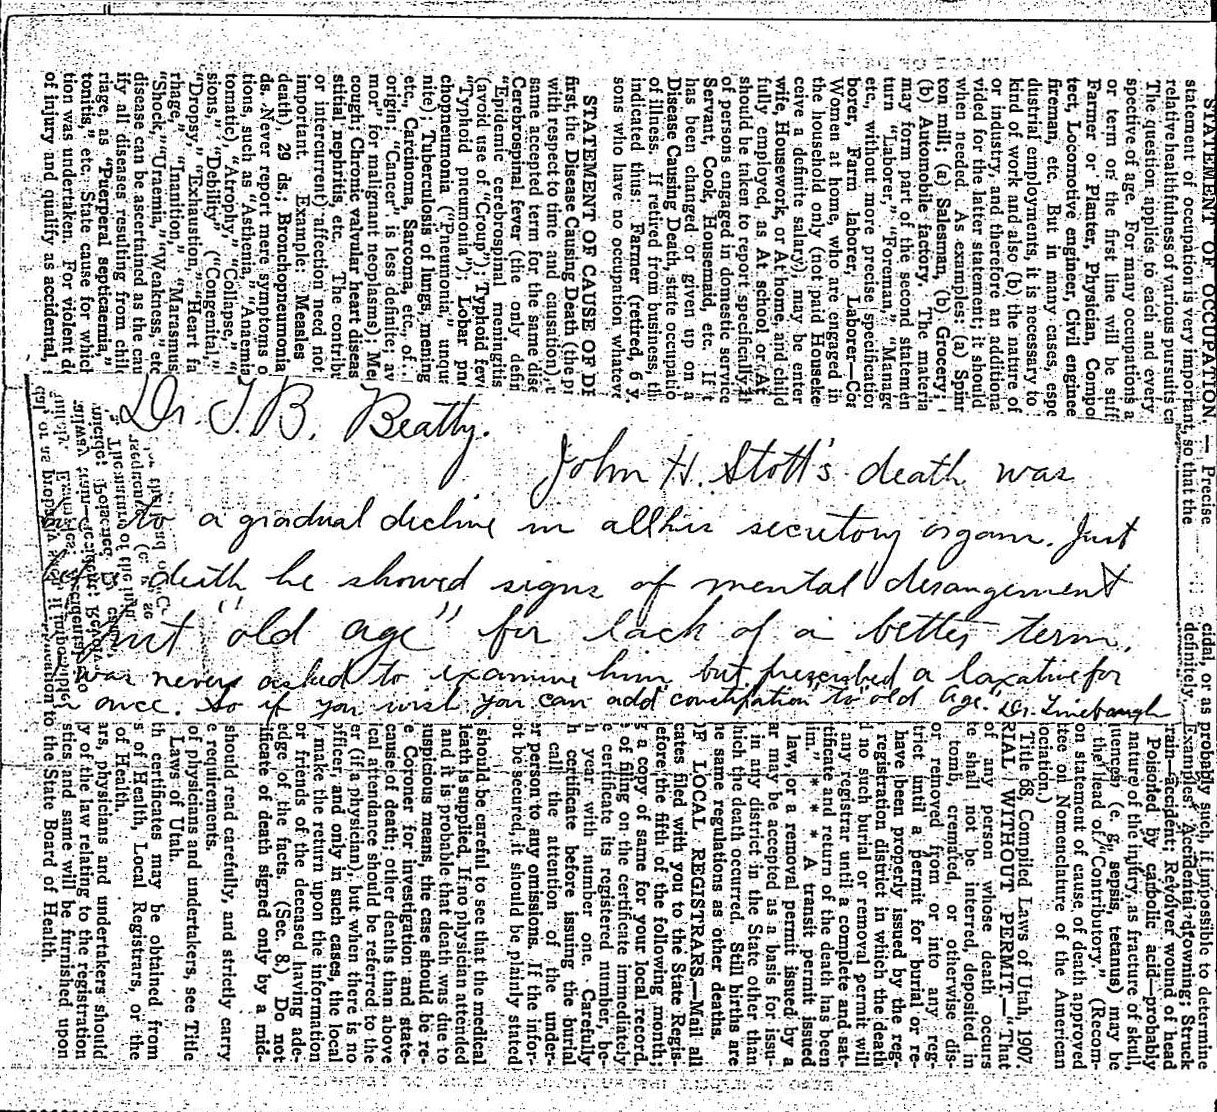 STATEMENT OF OCCUPATION.— Precise
statement of occupation is very important, so that the
relative healthfulness of various pursuits ca
The question applies to each and every
spective of age. For many occupations a
or term on the first line will be suff
Farmer or Planter, Physician, Compo
tect, Locomotive engineer, Civil enginee
fireman, etc. But in many cases, espe
dustrial employments, it is necessary to
kind of work and also (b) the nature of
or industry, and therefore an additiona
vided for the latter statement; it should
when needed. As examples: (a) Spinn
ton mill; (a) Salesman, (b) Grocery;
(b) Automobile factory. The materia
may form part of the second statemen
turn "Laborer," "Foreman," "Manage
etc., without more precise specification
borer, Farm laborer, Laborer—Coa
Women at home, who are engaged in
the household only (not paid Housekee
ceive a definite salary), may be enter
wife, Housework, or At home, and child
fully employed, as At school or At
should be taken to report specifically th
of persons engaged in domestic service
Servant, Cook, Housemaid, etc. If t
has been changed or given up on a
Disease Causing Death, state occupatio
of illness. If retired from business, th
indicated thus: Farmer (retired, 6 y
sons who have no occupation whateve
STATEMENT OF CAUSE OF DE
first, the Disease Causing Death (the pr
with respect to time and causation),
same accepted term for the same dise
Cerebrospinal fever (the only defin
"Epidemic cerebrospinal meningitis
(avoid use of "Croup"); Typhoid feve
"Typhoid pneumonia"); Lobar pne
chopneumonia ("Pneumonia," unqua
nite); Tuberculosis of lungs, mening
etc., Carcinoma, Sarcoma, etc., of
origin; "Cancer" is less definite; av
mor" for malignant neoplasms); Me
cough; Chronic valvular heart diseas
stitial nephritis, etc. The contribu
or intercurrent) affection need not
important. Example: Measles
death), 29 ds.; Bronchopneumonia
ds. Never report mere symptoms o
tions, such as "Asthenia," "Anaemia
tomatic), "Atrophy," "Collapse,"
sions," "Debility" ("Congenital,"
"Dropsy," "Exhaustion," "Heart fa
rhage," "Inanition," "Marasmus,
"Shock," "Uraemia," "Weakness," etc
disease can be ascertained as the cau
ify all diseases resulting from child
riage, as "Puerperal septicaemia,"
tonitis," etc. State cause for which
tion was undertaken. For violent de
of injury and qualify as accidental,
Dr. T. B. Beatty.
John H. Stott's death was
to a gradual decline in all his secretory organs. Just
death he showed signs of mental derangement
put "old age" for lack of a better term.
was never asked to examine him but prescribed a laxative for
once. So if you wish you can add constipation to "old age." Dr. Linebaugh
cidal, or as probably such, if impossible to determine
definitely. Examples: Accidental drowning; Struck
rain—accident; Revolver wound of head
Poisoned by carbolic acid—probably
nature of the injury, as fracture of skull,
quences (e. g., sepsis, tetanus) may be
the head of "Contributory." (Recom-
on statement of cause of death approved
tee on Nomenclature of the American
ociation.)
Title 68, Compiled Laws of Utah, 1907.
RIAL WITHOUT PERMIT.—"That
of any person whose death occurs
te shall not be interred, deposited in
tomb, cremated, or otherwise dis-
or removed from or into any reg-
trict until a permit for burial or re-
have been properly issued by the reg-
registration district in which the death
d no such burial or removal permit will
any registrar until a complete and sat-
tificate and return of the death has been
im." * * * A transit permit issued
law, or a removal permit issued by a
ar may be accepted as a basis for issu-
in any district in the State other than
hich the death occurred. Still births are
he same regulations as other deaths.
OF LOCAL REGISTRARS—Mail all
cates filed with you to the State Regis-
efore the fifth of the following month;
s a copy of same for your local record.
of filing on the certificate immediately
e certificate its registered number, be-
h year with number one. Carefully
h certificate before issuing the burial
call the attention of the under-
er person to any omissions. If the infor-
ot be secured, it should be plainly stated
should be careful to see that the medical
death is supplied. If no physician attended
and it is probable that death was due to
uspicious means, the case should be re-
e Coroner for investigation and state-
cause of death; other deaths than above
ical attendance should be referred to the
er (if a physician), but when there is no
officer, and only in such cases, the local
y make the return upon the information
or friends of the deceased having ade-
edge of the facts. (Sec. 8.) Do not
ificate of death signed only by a mid-
should read carefully, and strictly carry
e requirements.
of physicians and undertakers, see Title
Laws of Utah.
th certificates may be obtained from
s of Health, Local Registrars, or the
of Health.
ars, physicians and undertakers should
y of the law relating to the registration
stics and same will be furnished upon
to the State Board of Health.